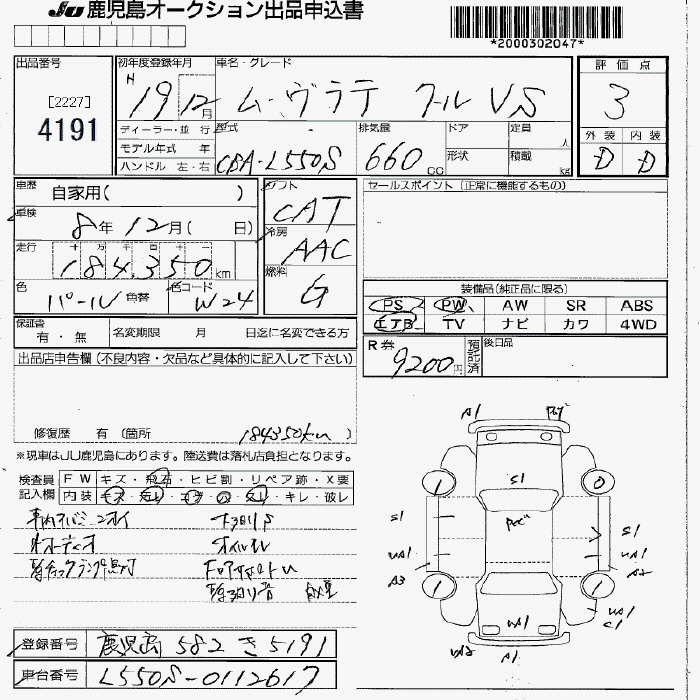 JU 鹿児島オークション出品申込書
*2000302047*
出品番号
[2227]
4191
初年度登録年月
H 19 12月
車名・グレード
ム-ヴラテ クールVS
評価点
3
外装 内装
D D
ディーラー・並行
モデル年式 年
ハンドル 左・右
型式
CBA-L550S
排気量
660 cc
ドア
形状
定員 人
積載 kg
車歴
自家用( )
車検
8年12月( 日)
走行
十 万 千 百 十 一
184,350 km
色
パール
色替
色コード
W24
シフト
CAT
冷房
AAC
燃料
G
セールスポイント(正常に機能するもの)
装備品(純正品に限る)
PS PW AW SR ABS
エアB TV ナビ カワ 4WD
保証書
有・無
名変期限 月 日迄に名変できる方
R券
9200円
預託済
後日品
出品店申告欄(不良内容・欠品など具体的に記入して下さい)
修復歴 有(箇所 184350km)
※現車はJU鹿児島にあります。陸送費は落札店負担となります。
検査員
記入欄
FW キズ・飛石・ヒビ割・リペア跡・X要
内装 キズ・汚レ・コゲ・穴・スレ・キレ・破レ
オイルモレ
A1
S1
1
0
S1
S1
UA1
UA1
A3
A2
1
1
UA1
UA1
C1
UA2
A1
登録番号
鹿児島 582 き 5191
車台番号
L550S-0112617